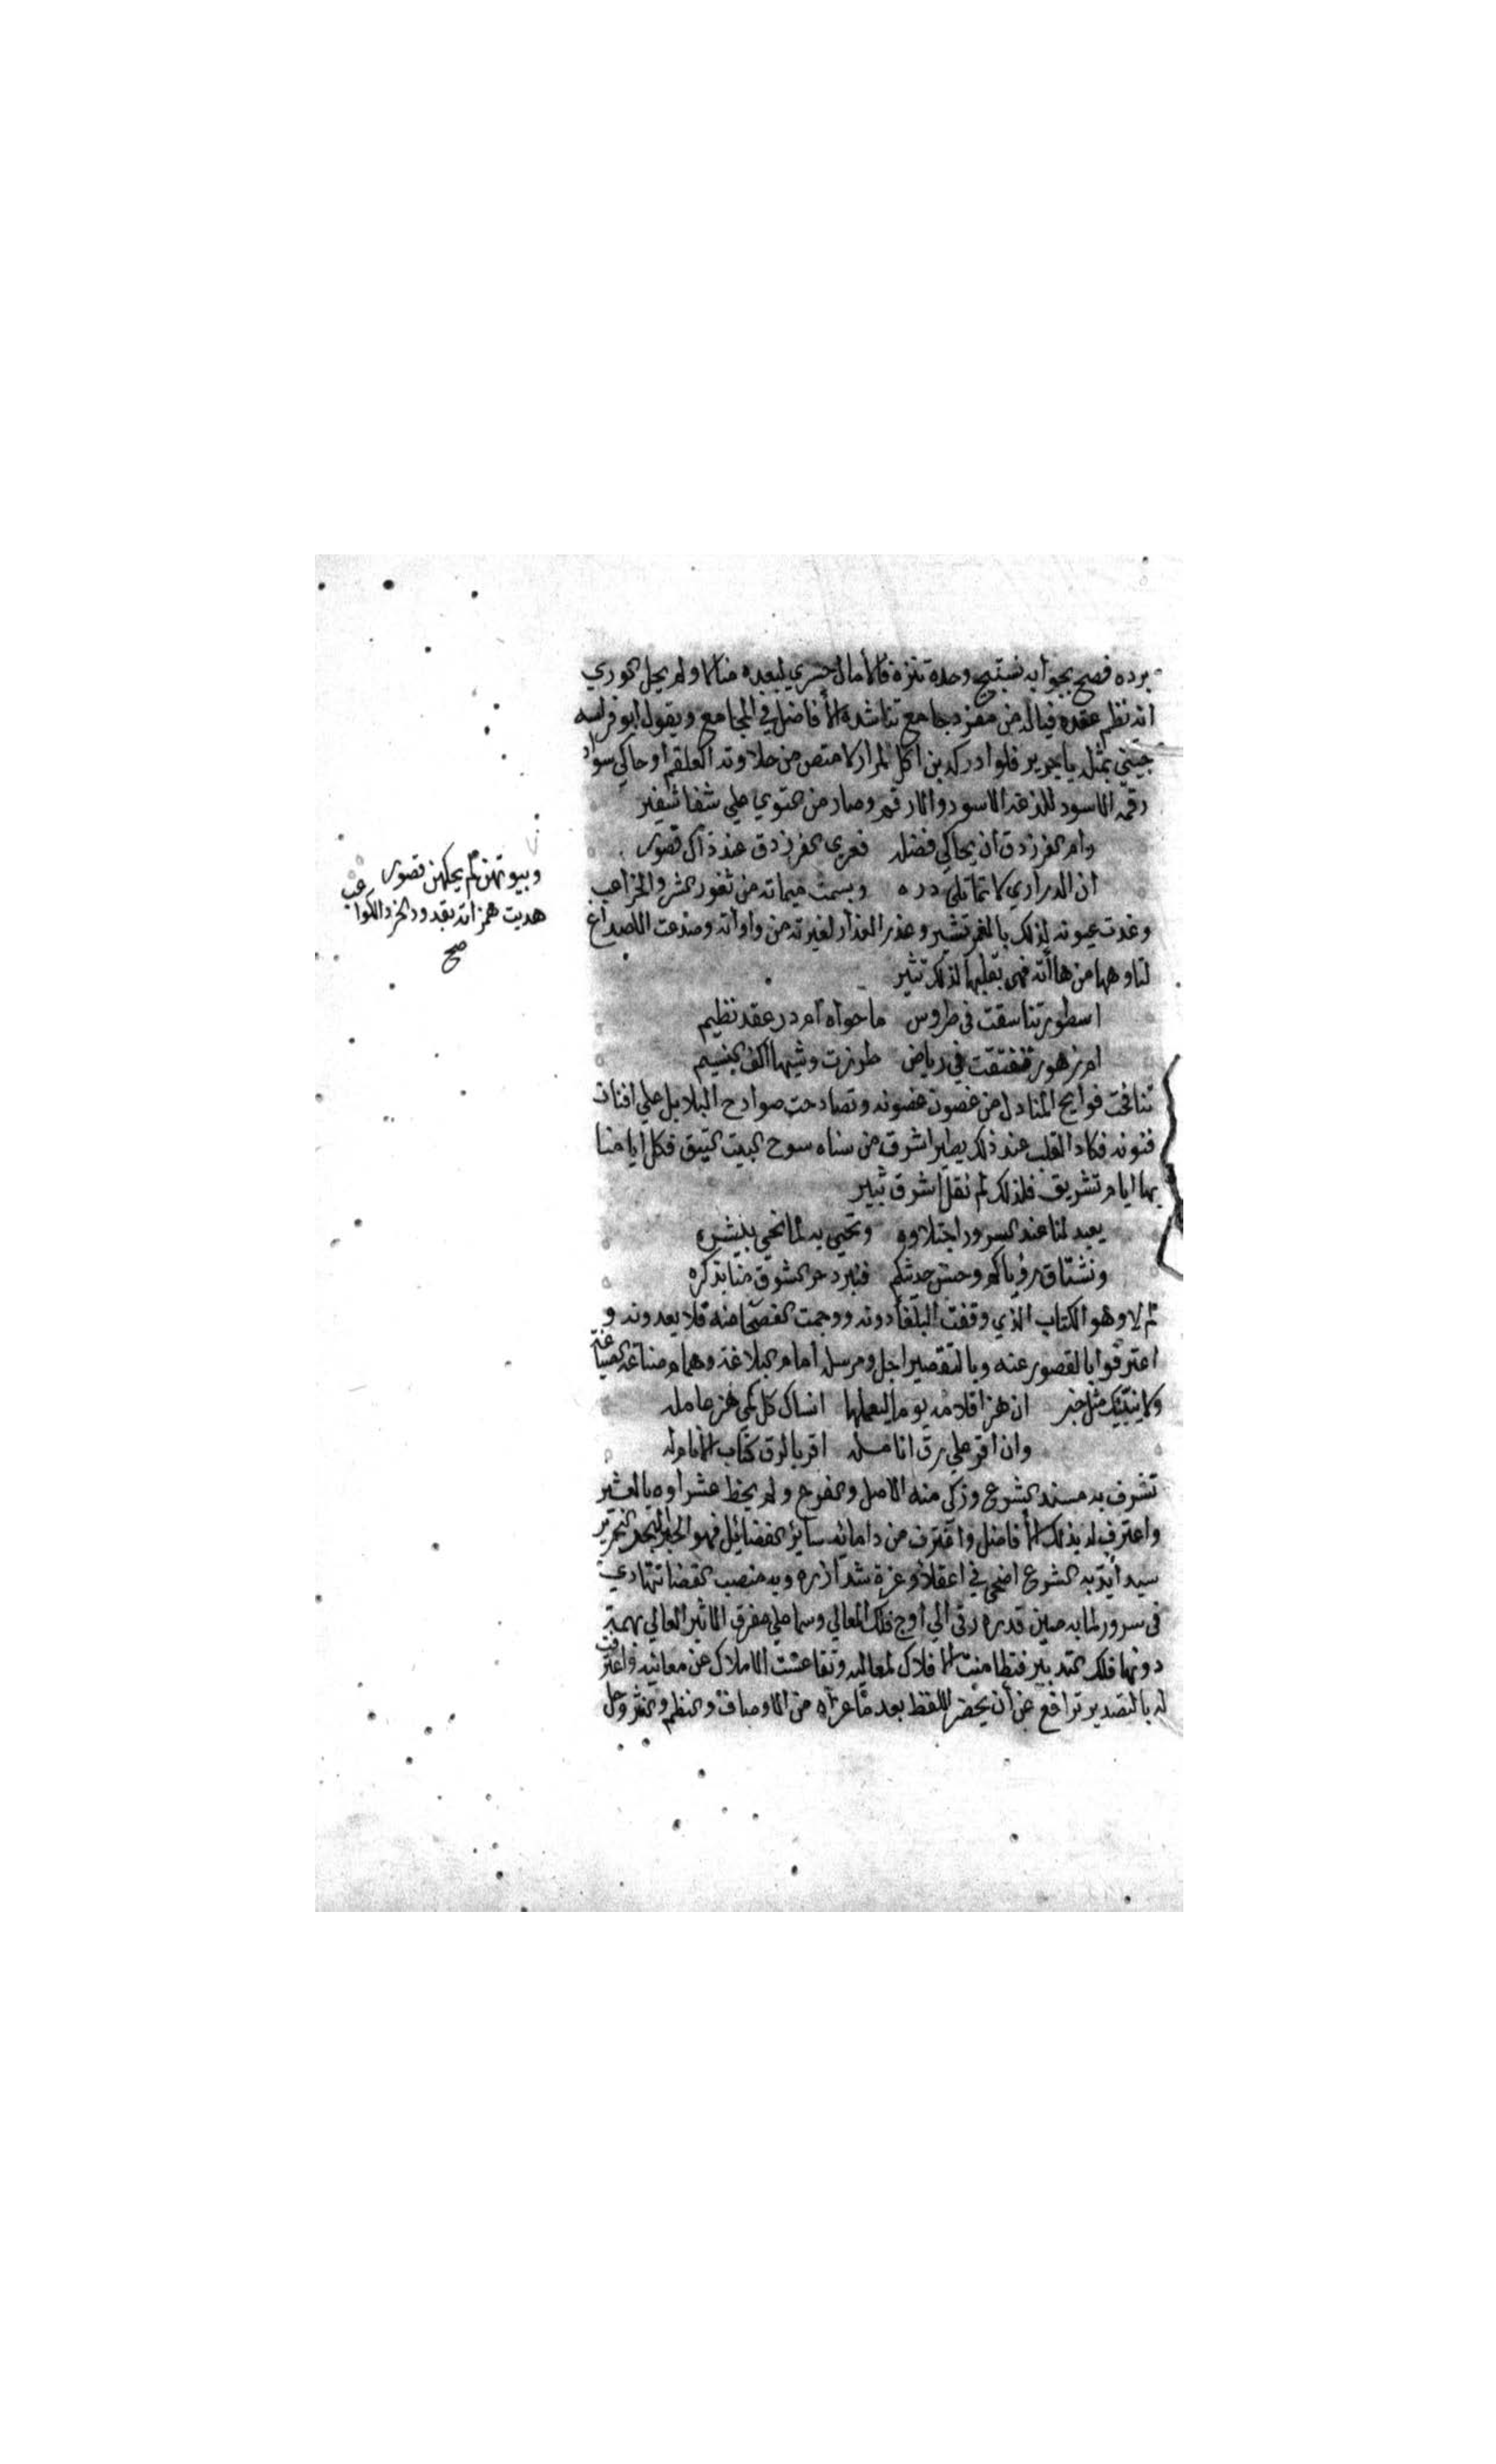 برده فصح بجوابه نسيج وحده تنزه فلا مال حسري لبعده منالا ولم يحل الحوري
انه نظم عقده فياله من مفرد جامع تناشده الأفاضل في المجامع ويقول ابو فراسه
جيني بمثله يا جرير فلو ادركه بن آكل المرار لامتص من حلاوته العلقم او حاكي سواد
رقمه الاسود للدغه الاسود والارقم وصار من محتوي علي شفا شفير
وام الفرزدق أن يحاكي فضله فعري الفرزدق عند ذاك قصور
ان الدراري لا تماثل دره وبيوتهن لم يحلهن قصور
وبسمت ميماته من ثغور البشر والخراعب
هديت همزاته بقدود الخرد الكواعب
صح
وغدت عيونه لذلك بالغمز تشير وعذر العذار لغيرته من واواته وصدغت الاصداغ
لتاوهها من هاأته فهي بقلبها لذلك تثير
اسطور تناسقت في طروس ما حواه ام در عقد نظيم
ام زهور تفتقت في رياض طرزت وشيها اكف النسيم
تنافحت فوايح المنادل من غصون غصونه وتصادحت صوادح البلابل علي افنان
فنونه فكاد القلب عند ذلك يطير اشرق من سناه سوح البيت العتيق فكل ايامنا
بها ايام تشريق فلذلك لم نقل اشرق ثبير
يعيد لنا عند السرور اجتلاوه وتحيي به لما نحي بنشره
ونشتاق رؤياكم وحسن حديثكم فنبرد حر الشوق منا بذكره
لم لا وهو الكتاب الذي وقفت البلغا دونه ووجمت الفصحا منه فلا يعدونه و
اعترفوا بالقصور عنه وبالتقصير اجل ومرسله أمام البلاغة وهمام صناعة الصياغة
ولا ينبئك مثل خبير ان هز اقلامه يوما ليعملها انساك كل كمي هز عامله
وان اقر علي رق انامله اقر بالرق كتاب الأنام له
تشرف به مسند الشرع وزكى منه الاصل والفرع ولم يحظ عشراوه بالعشير
واعترف له بذلك الأفاضل واغترف من داماءه ساير الفضائل فهو الحبر البحر النحرير
سيد أيد به الشرع اضحى في اعتلاء وعزة شد ازره وبه منصب القضا تتهادي
في سرور لما به صين قدره رقى الي أوج فلك المعالي وسما علي مفرق الاثير العالي بهمة
دونها فلك التدبير فتطامنت الافلاك لمعاليه وتقاعست الاملاك عن معانيه واعترفت
له بالتصدير ترافع عن أن يحضر اللفظ بعد ما عراه من الاوصاف والنظم والنثر وجل